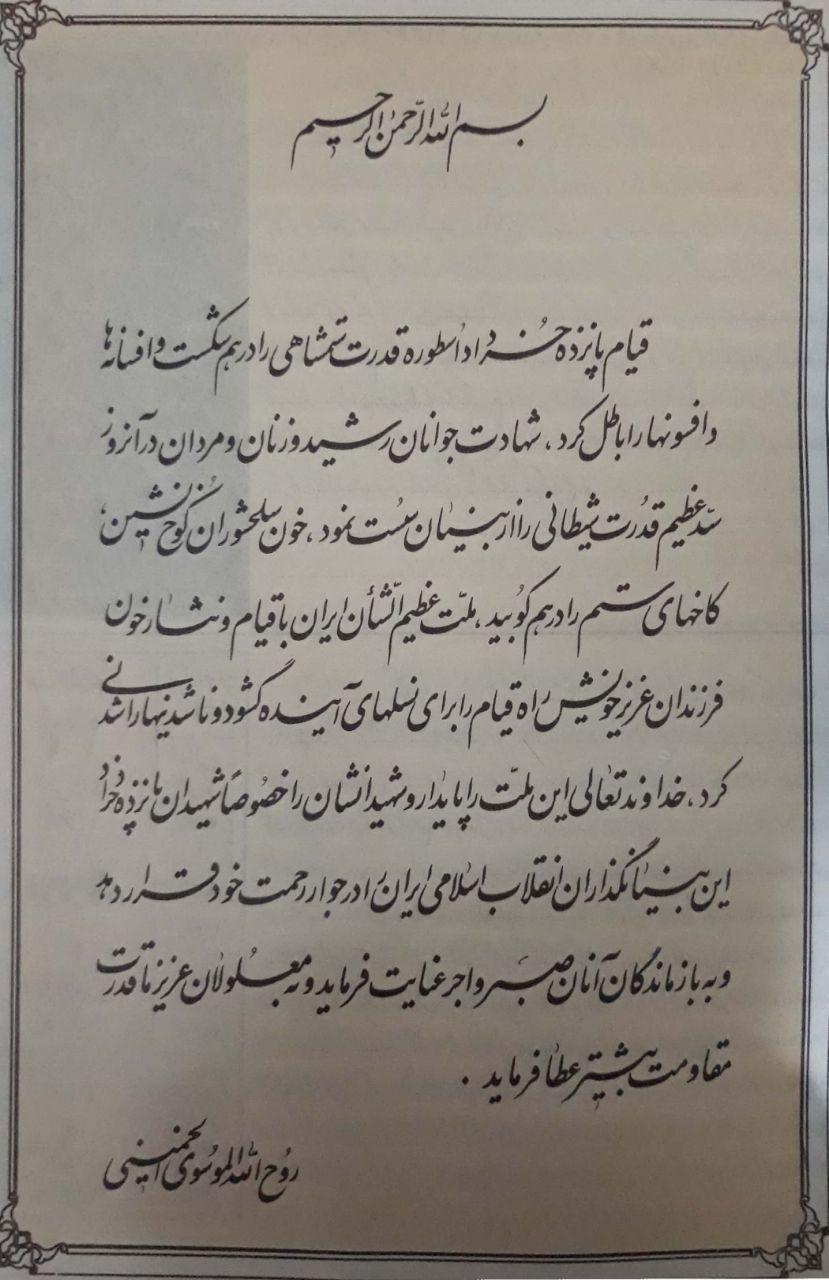 بسم الله الرّحمن الرحیم
قیام پانزده خُرداد اُسطوره قدرت ستمشاهی را در هم شکست و افسانه ها
و افسونها را باطل کرد، شهادت جوانان رشید و زنان و مردان در آنروز
سدّ عظیم قدُرت شیطانی را از بنیان سُست نمود، خون سلحشوران کوخ نشین،
کاخهای ستم را در هم کوُبید، ملّت عظیم الشّأن ایران با قیام و نثار خون
فرزندان عزیز خویش راه قیام را برای نسلهای آینده گشود و ناشدنیها را شدنی
کرد، خداوند تعالی این ملّت را پایدار و شهیدانشان را خصُوصاً شهیدان پانزده خرداد
این بنیانگذاران انقلاب اسلامی ایران را در جوار رحمت خود قرار دهد
و به بازماندگان آنان صبر و اجر عنایت فرماید و به معلُولان عزیز ما قدرت
مقاومت بیشتر عطا فرماید .
روُح الله الموسُوی الخمینی